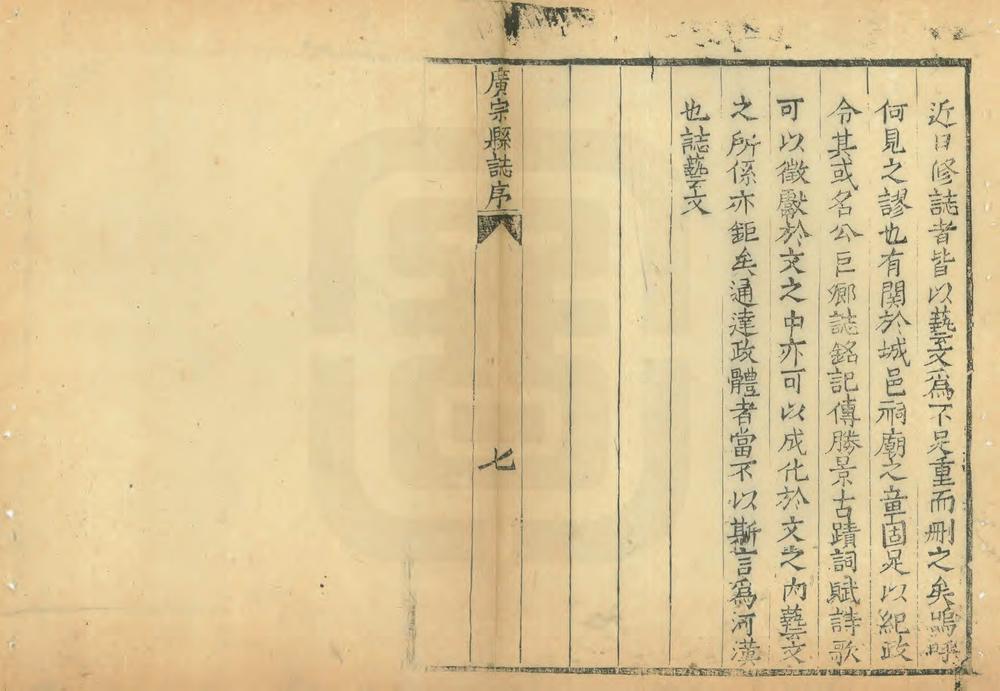 近日修誌者皆以藝文爲不足重而刪之矣嗚呼
何見之謬也有関於城邑祠廟之章固足以紀政
令其或名公巨鄉誌銘記傳勝景古蹟詞賦詩歌
可以徵獻於文之中亦可以成化於文之內藝文
之所係亦鉅矣通達政體者當不以斯言爲河漢
也誌藝文
廣宗縣誌序
七